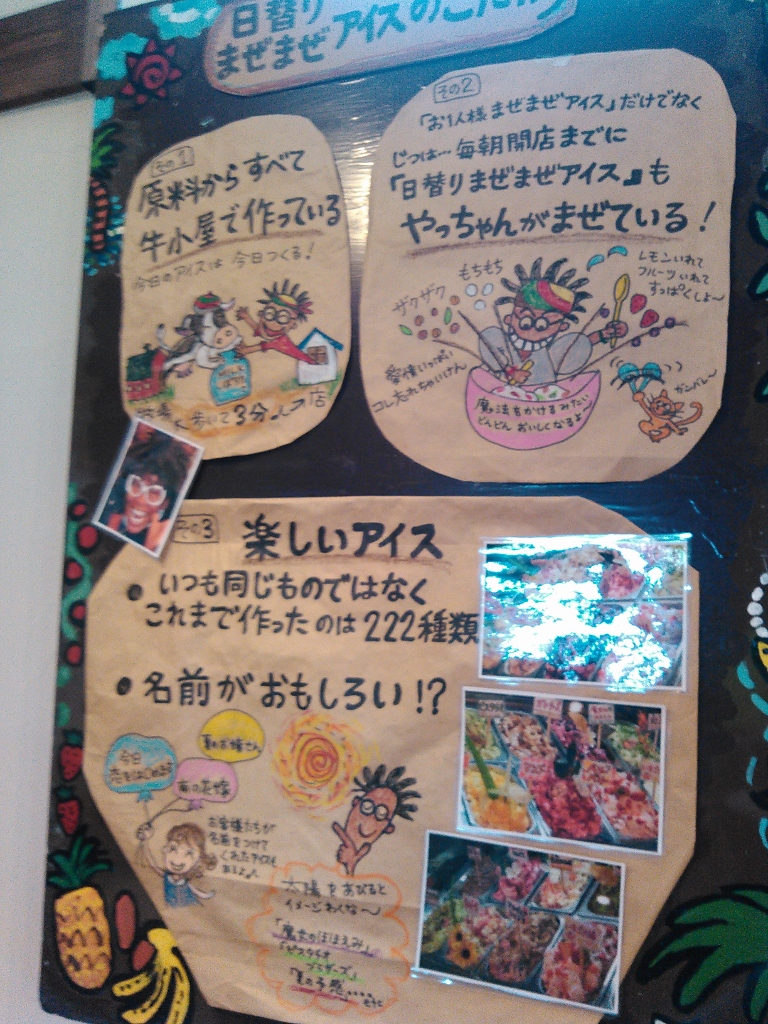 日替り
まぜまぜアイスのこだわり
その1
原料からすべて
牛小屋で作っている
今日のアイスは 今日つくる!
歩いて3分
店
その2
「お1人様まぜまぜアイス」だけでなく
じつは…毎朝開店までに
『日替りまぜまぜアイス』も
やっちゃんがまぜている!
レモンいれて
フルーツいれて
すっぱくしよ〜
もちもち
ザクザク
愛情いっぱい
コレたれちゃいけん
魔法をかけるみたい
どんどんおいしくなるよ
ガンバレ〜
その3
楽しいアイス
• いつも同じものではなく
これまで作ったのは222種類
• 名前がおもしろい!?
今日
恋をはじめよう
夏のお嬢さん
南の花嫁
お客様たちが
名前をつけて
くれたアイスも
あるよ
太陽をあびると
イメージわくな〜
「魔女のほほえみ」
「ピスタチオ
ブラザーズ」
「夏の予感……